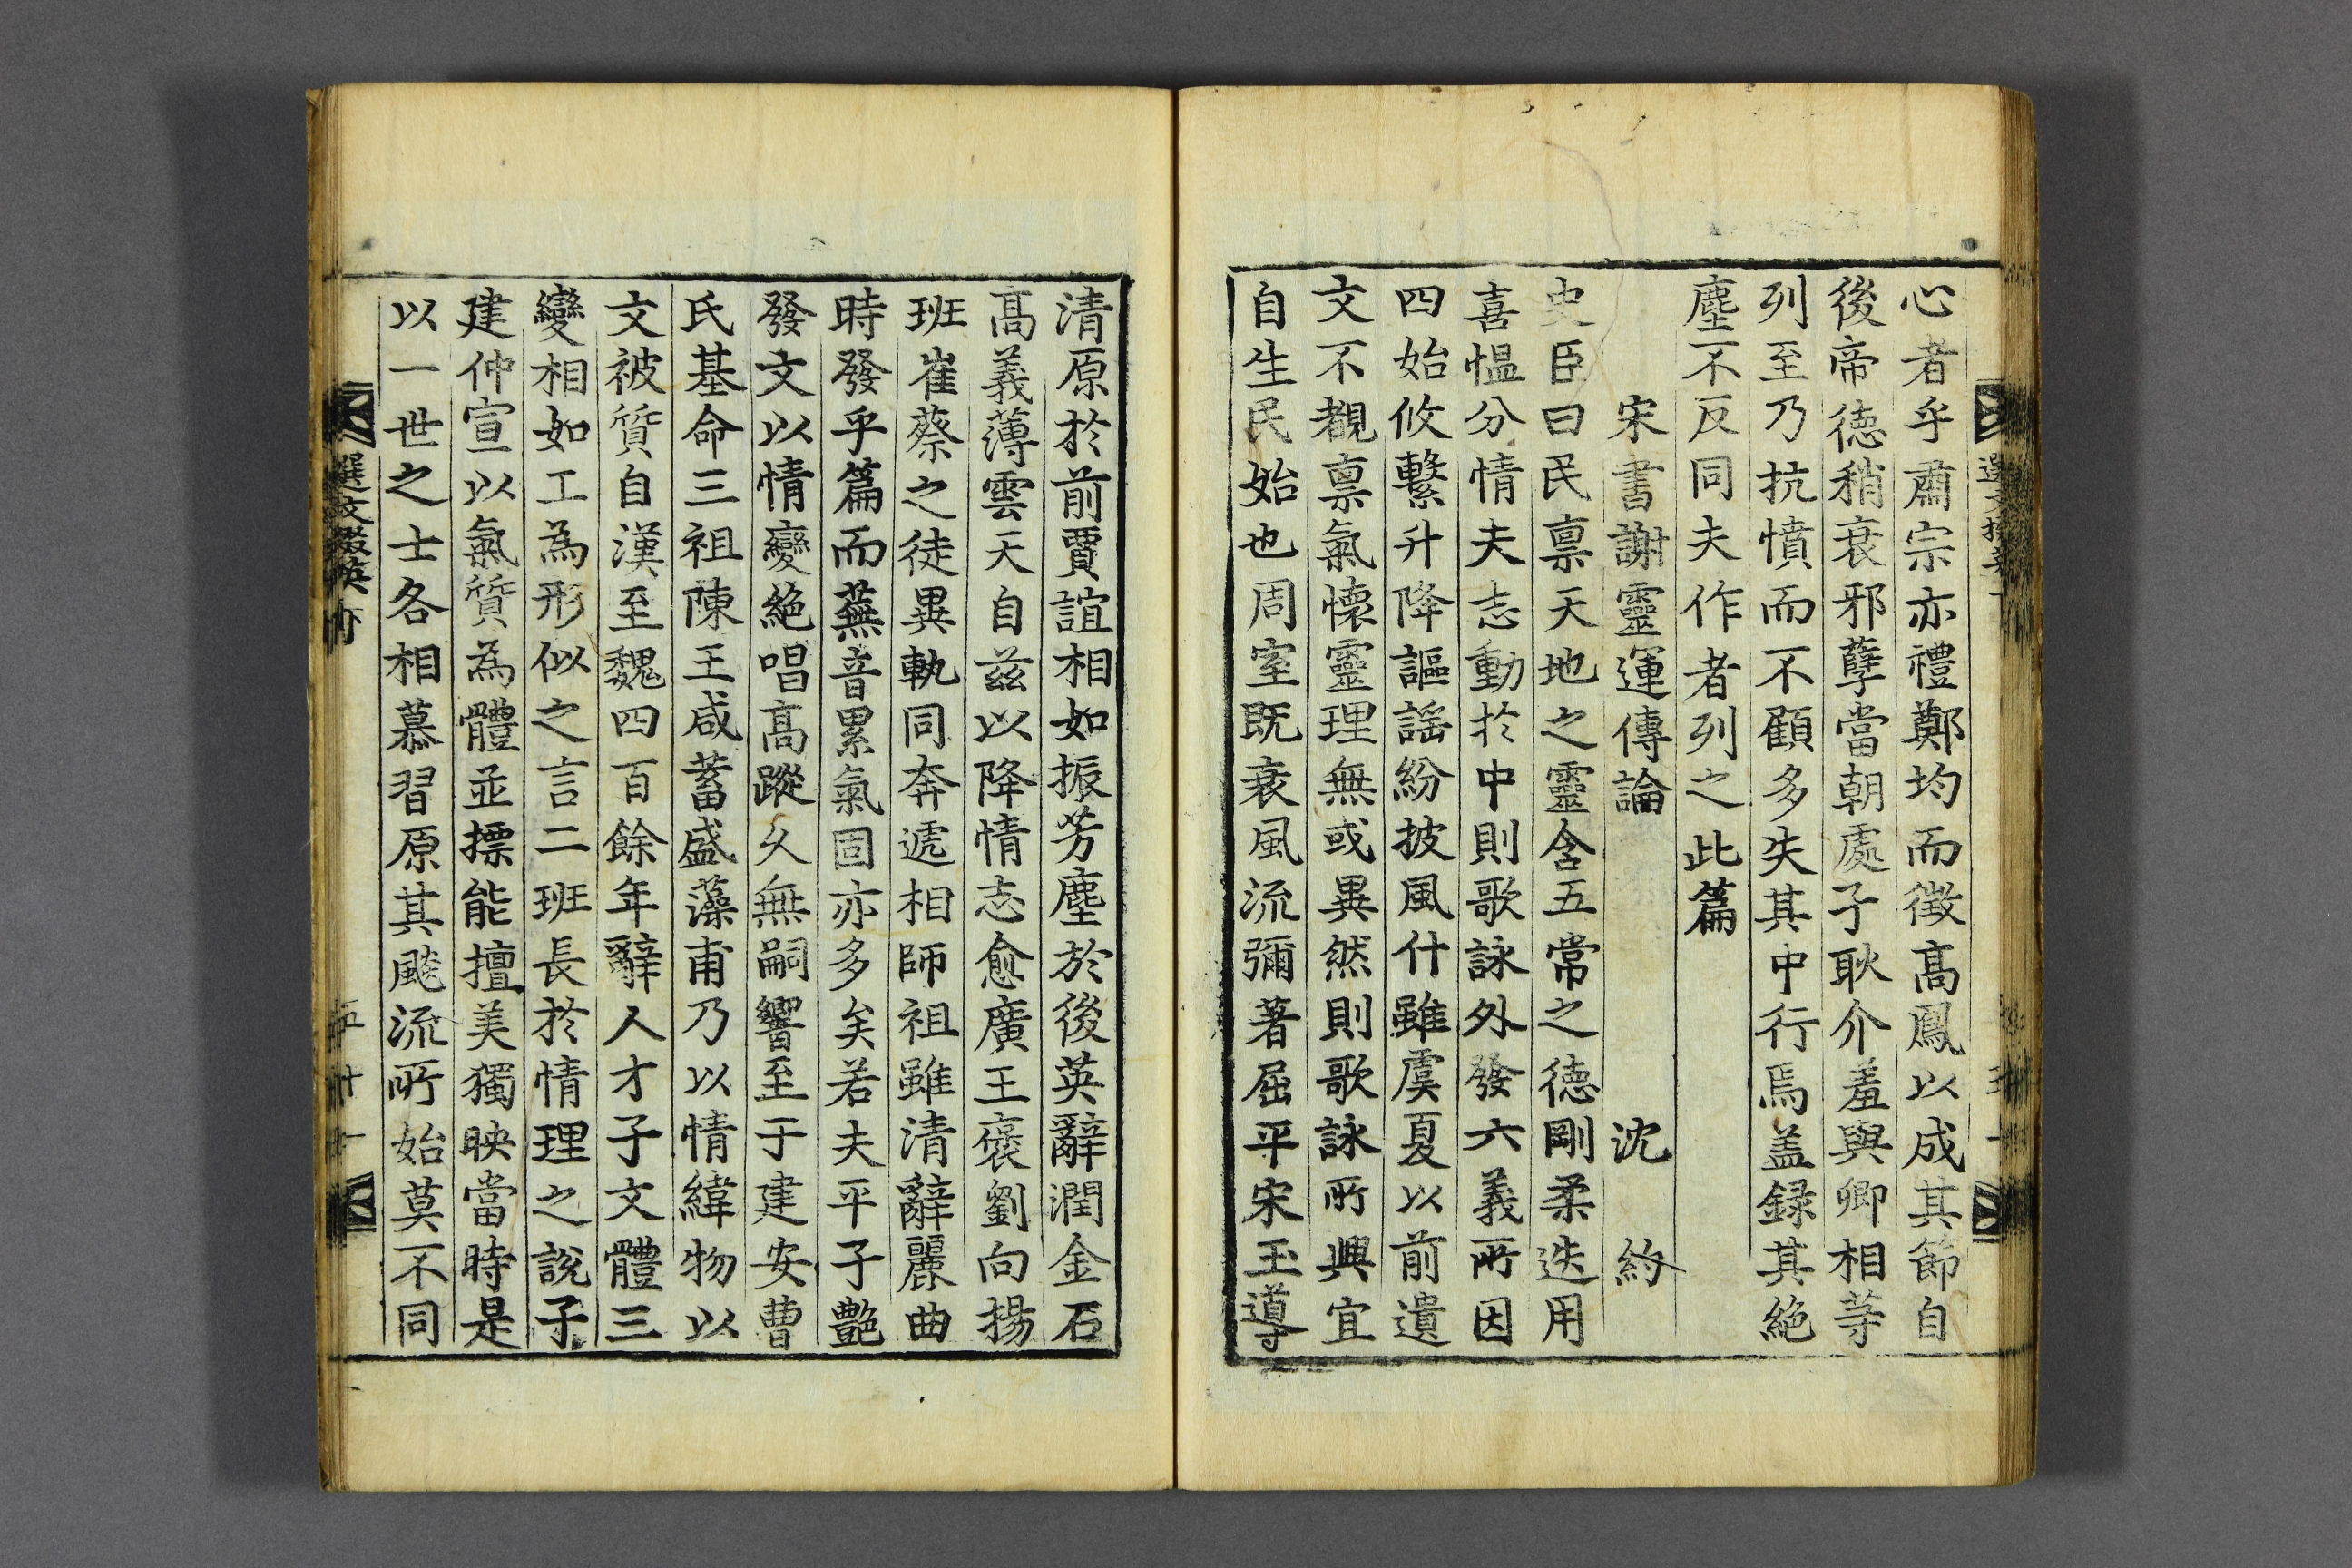 心者乎肅宗亦禮鄭均而徵高鳳以成其節自
後帝徳稍衰邪孽當朝處子耿介羞與卿相等
列至乃抗憤而不顧多失其中行焉盖録其絶
塵不反同夫作者列之此篇
宋書謝靈運傳論 沈約
史臣曰民禀天地之靈含五常之徳剛柔迭用
喜愠分情夫志動扵中則歌詠外發六義所因
四始攸繫升降謳謠紛披風什雖虞夏以前遺
文不覩禀氣懷靈理無或異然則歌詠所興宜
自生民始也周室既衰風流彌著屈平宋玉導
清原扵前賈誼相如振芳塵於後英辭潤金石
高義薄雲天自兹以降情志愈廣王褒劉向揚
班崔蔡之徒異軌同奔遞相師祖雖清辭麗曲
時發乎篇而蕪音累氣固亦多矣若夫平子艶
發文以情變絶唱高蹤久無嗣響至于建安曹
氏基命三祖陳王咸蓄盛藻甫乃以情緯物以
文被質自漢至魏四百餘年辭人才子文體三
變相如工為形似之言二班長扵情理之說子
建仲宣以氣質為體並摽能擅美獨映當時是
以一世之士各相慕習原其飈流所始莫不同
選文掇英